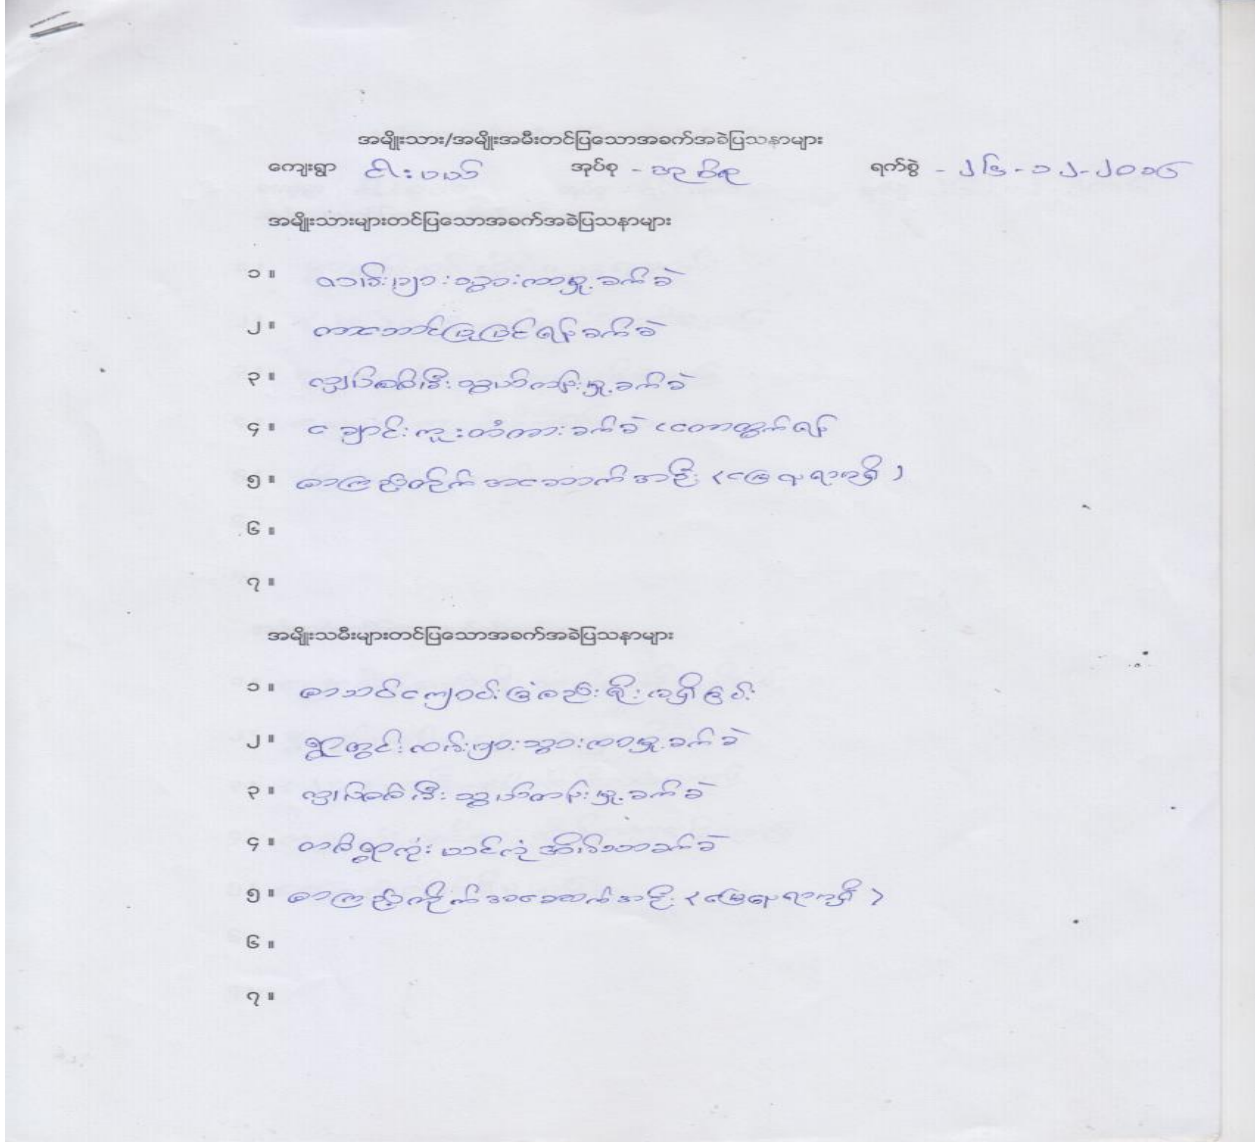 အမျိုးသား/အမျိုးအမီးတင်ပြသောအခက်အခဲပြသနာများ
ကျေးရွာ ငါးပယ် အုပ်စု - ရက်စွဲ - ၂၆-၁၂-၂၀၁၆
အမျိုးသားများတင်ပြသောအခက်အခဲပြသနာများ
၁။ လမ်းများသွားလာမှု့ခက်ခဲ
၂။ တာဘောင်ပြုပြင်ရန်ခက်ခဲ
၃။ လျှပ်စစ်မီးသွယ်တန်းမှု့ခက်ခဲ
၄။ ချောင်းကူးတံတားခက်ခဲ တောထွက်ရန်
၅။ စာကြည့်တိုက်အဆောက်အဦး (မြေနေရာရှိ)
၆။
၇။
အမျိုးသမီးများတင်ပြသောအခက်အခဲပြသနာများ
၁။ စာသင်ကျောင်းခြံစည်းရိုးမရှိခြင်း
၂။ ရွာတွင်းလမ်းများသွားလာမှု့ခက်ခဲ
၃။ လျှပ်စစ်မီးသွယ်တန်းမှု့ခက်ခဲ
၄။ တစ်ရွာလုံးယင်လုံအိမ်သာခက်ခဲ
၅။ စာကြည့်တိုက်အဆောက်အဦး (မြေနေရာရှိ)
၆။
၇။